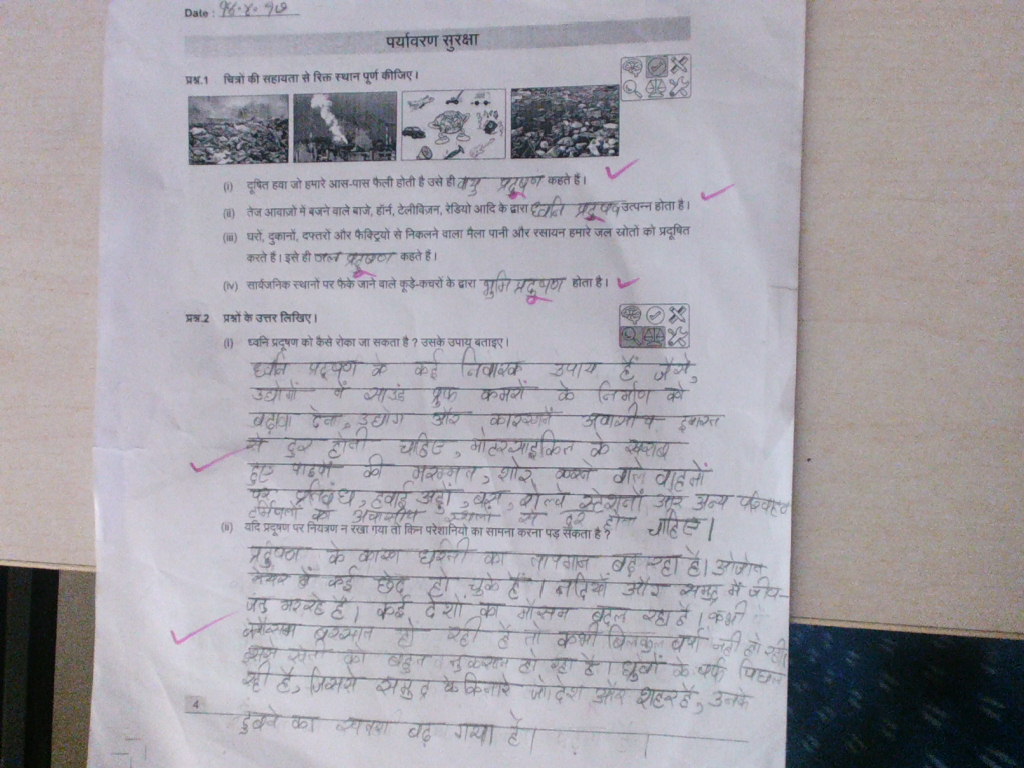 Date : १८.४.१७
पर्यावरण सुरक्षा
प्रश्न.1 चित्रो की सहायता से रिक्त स्थान पूर्ण कीजिए ।
(i) दूषित हवा जो हमारे आस-पास फैली होती है उसे ही वायु प्रदूषण कहते हैं ।
(ii) तेज आवाजो में बजने वाले बाजे, हॉर्न, टेलीविज़न, रेडियो आदि के द्वारा ध्वनि प्रदूषण उत्पन्न होता है ।
(iii) घरों, दुकानों, दफ्तरों और फैक्ट्रियो से निकलने वाला मैला पानी और रसायन हमारे जल स्रोतो को प्रदूषित
करते हैं । इसे ही जल प्रदूषण कहते है ।
(iv) सार्वजनिक स्थानों पर फेके जाने वाले कूड़े-कचरों के द्वारा भुमि प्रदूषण होता है ।
प्रश्न.2 प्रश्नो के उत्तर लिखिए ।
(i) ध्वनि प्रदूषण को कैसे रोका जा सकता है ? उसके उपाय बताइए ।
ध्वनि प्रदूषण के कई निवारक उपाय हैं जैसे,
उद्योगों में साउंड प्रुफ कमरों के निर्माण को
बढ़ावा देना, उद्योग और कारखाने आवासीय इमारत
से दुर होनी चाहिए, मोटरसाइकिल के खराब
हुए पाइपों की मरम्मत, शोर करने वाले वाहनों
पर प्रतिबंध, हवाई अड्डों, बस, रेल्व स्टेशनों और अन्य परिवहन
टर्मिनलों का आवासीय स्थलों से दुर होना चाहिए ।
(ii) यदि प्रदूषण पर नियत्रण न रखा गया तो किन परेशानियो का सामना करना पड़ सकता है ?
प्रदुषण के कारण धरती का तापमान बढ़ रहा है। ओजोन
लेयर में कई छेद हो चुके हैं । नदियों और समुद्र में जीव-
जंतु मर रहे है । कई देशों का मौसम बदल रहा है । कभी
बेमौसम बरसात हो रही है तो कभी बिलकुल वर्षा नही हो रही
इससे खेती को बहुत नुकसान हो रहा है । ध्रुवों के बर्फ पिघल
रही है, जिससे समुद्र के किनारे जो देश और शहर है, उनके
डुबने का खतरा बढ़ गया है ।
4